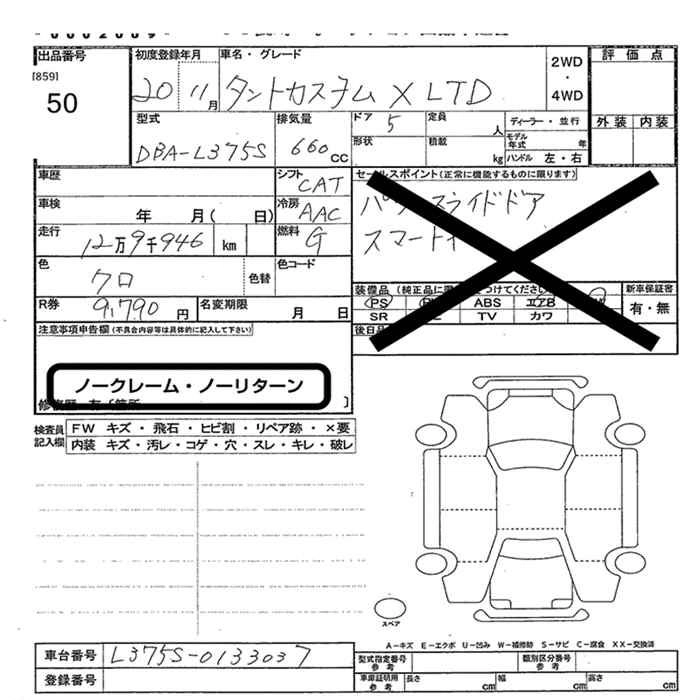 出品番号
[859]
50
初度登録年月
20 11月
車名・グレード
タントカスタム X LTD
2WD
・
4WD
評価点
外装 内装
型式
DBA-L375S
排気量
660 CC
ドア 5
形状
定員 人
積載 kg
ディーラー・並行
モデル年式 年
ハンドル 左・右
車歴
車検 年 月( 日)
走行 12万9千946 km
色 クロ
色替
色コード
R券 9,790 円
名変期限 月 日
シフト CAT
冷房 AAC
燃料 G
セールスポイント(正常に機能するものに限ります)
スライドドア
スマート
装備品
PS ABS エアB
SR TV カワ
新車保証書
有・無
後日品
注意事項申告欄(不具合内容等は具体的に記入して下さい)
ノークレーム・ノーリターン
検査員記入欄
FW キズ・飛石・ヒビ割・リペア跡・×要
内装 キズ・汚レ・コゲ・穴・スレ・キレ・破レ
スペア
A−キズ E−エクボ U−凹み W−補修跡 S−サビ C−腐食 XX−交換済
車台番号 L375S-0133037
登録番号
型式指定番号参考
類別区分番号参考
車庫証明用参考
長さ cm
幅 cm
高さ cm